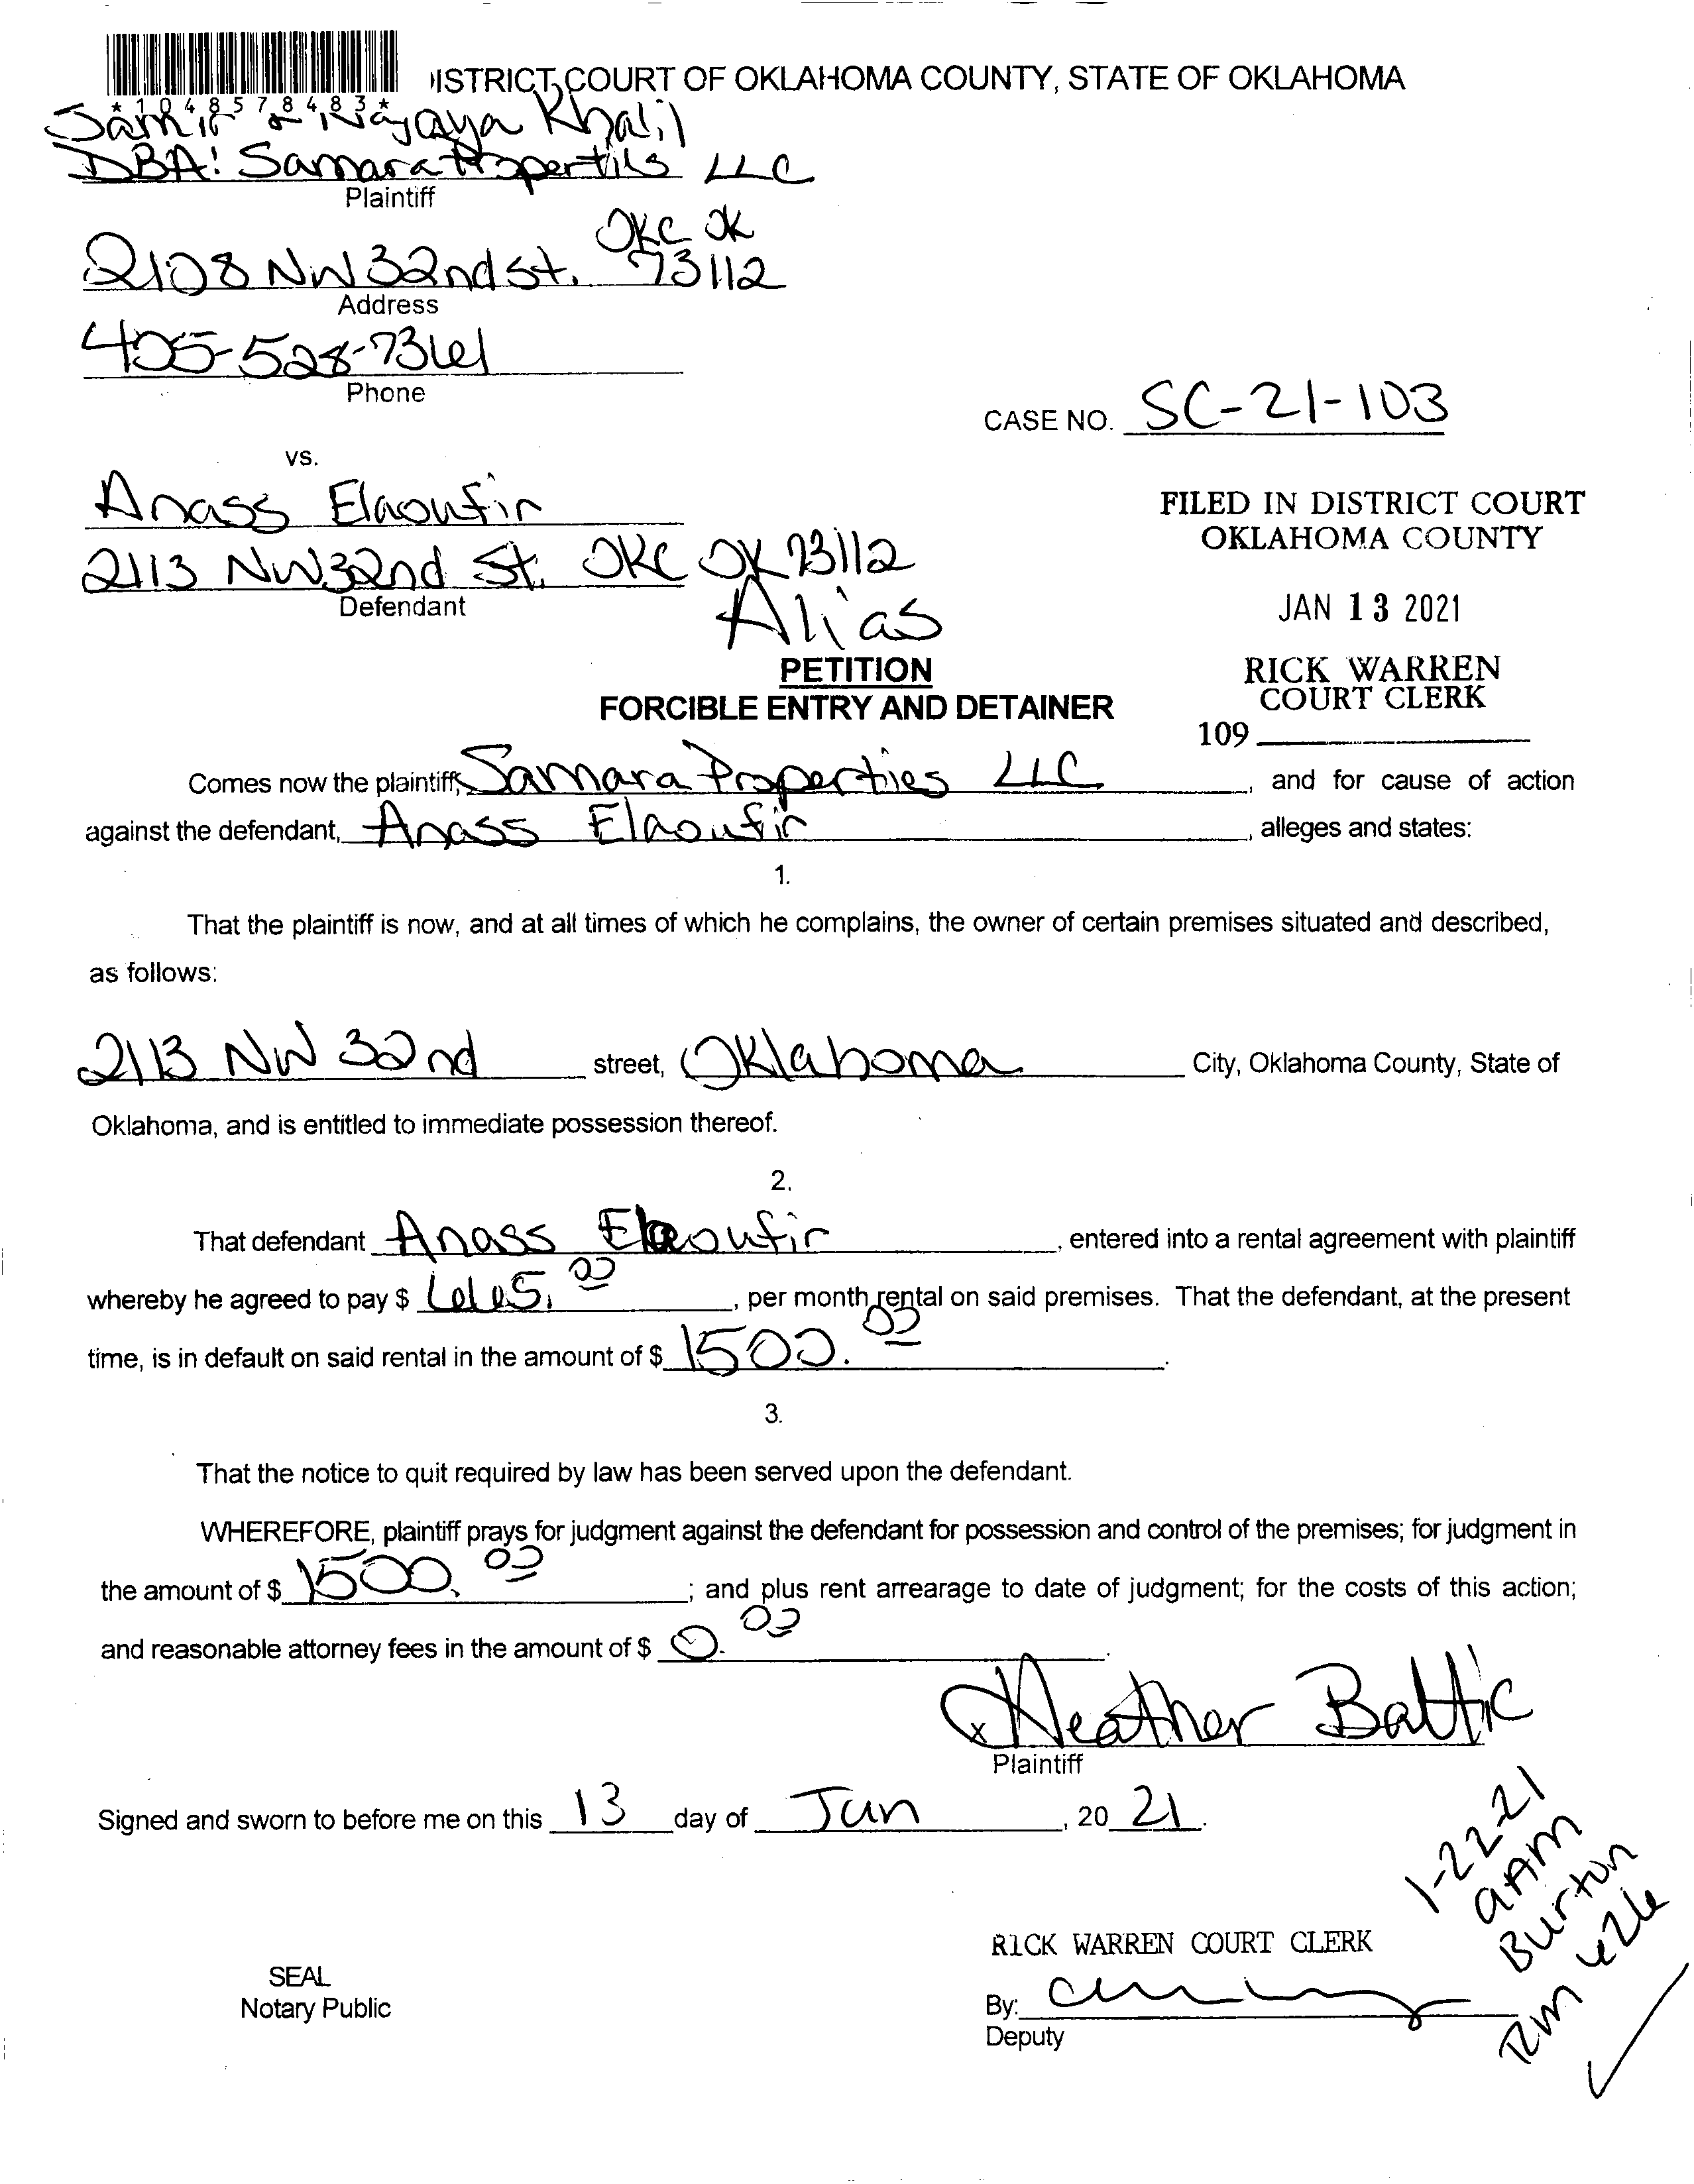 ISTRICT COURT OF OKLAHOMA COUNTY, STATE OF OKLAHOMA
*1048578483*
Samir & Khalil
DBA: Samara Propertils LLC
Plaintiff
OKC OK
2108 NW 32nd St. 73112
Address
405-528-7361
Phone
CASE NO. SC-21-103
vs.
Anass Elaoufir
2113 NW 32nd St. OKC OK 73112
Defendant
FILED IN DISTRICT COURT
OKLAHOMA COUNTY
JAN 13 2021
RICK WARREN
COURT CLERK
109
Alias
PETITION
FORCIBLE ENTRY AND DETAINER
Comes now the plaintiff, Samara Properties LLC, and for cause of action
against the defendant, Anass Elaoufir, alleges and states:
1.
That the plaintiff is now, and at all times of which he complains, the owner of certain premises situated and described,
as follows:
2113 NW 32nd street, Oklahoma City, Oklahoma County, State of
Oklahoma, and is entitled to immediate possession thereof.
2.
That defendant Anass Elaoufir, entered into a rental agreement with plaintiff
whereby he agreed to pay $ 665.00, per month rental on said premises. That the defendant, at the present
time, is in default on said rental in the amount of $ 1500.00.
3.
That the notice to quit required by law has been served upon the defendant.
WHEREFORE, plaintiff prays for judgment against the defendant for possession and control of the premises; for judgment in
the amount of $ 1500.00; and plus rent arrearage to date of judgment; for the costs of this action;
and reasonable attorney fees in the amount of $ 0.00.
x Heather Baltic
Plaintiff
Signed and sworn to before me on this 13 day of Jan, 20 21.
1-22-21
9AM
Burton
Rm 426
RICK WARREN COURT CLERK
SEAL
Notary Public
By:
Deputy